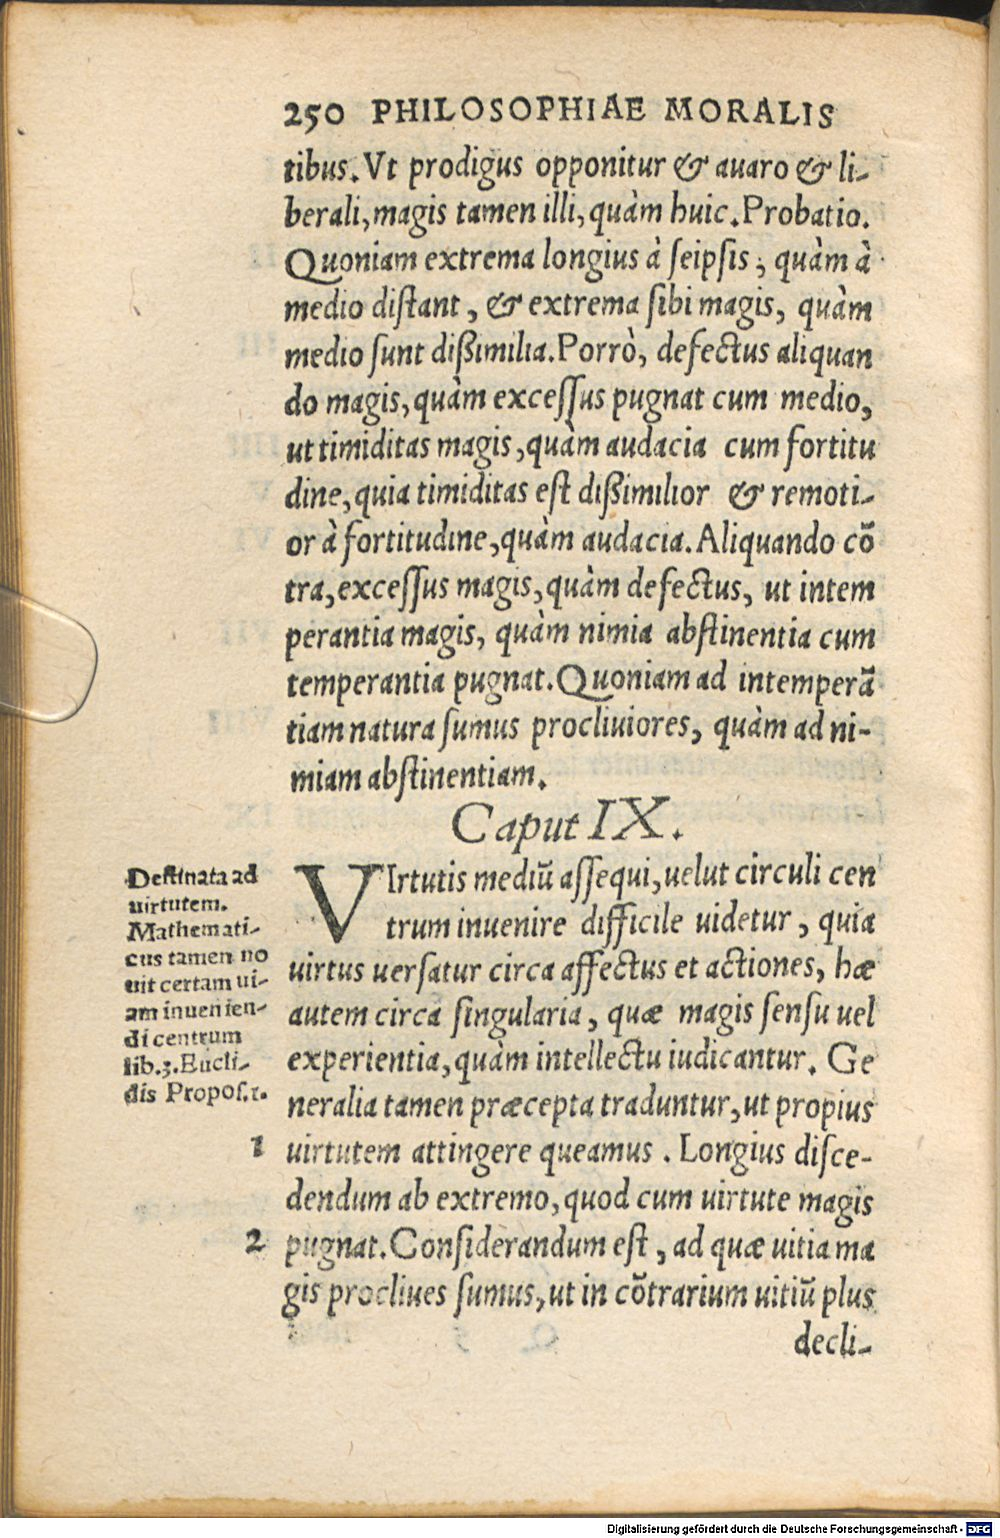 250 PHILOSOPHIAE MORALIS
tibus. Vt prodigus opponitur & auaro & li-
berali, magis tamen illi, quàm huic. Probatio.
Quoniam extrema longius à ſeipſis; quàm à
medio diſtant, & extrema ſibi magis, quàm
medio ſunt dißimilia. Porrò, defectus aliquan
do magis, quàm exceſſus pugnat cum medio,
ut timiditas magis, quàm audacia cum fortitu
dine, quia timiditas eſt dißimilior & remoti-
or à fortitudine, quàm audacia. Aliquando cõ
tra, exceſſus magis, quàm defectus, ut intem
perantia magis, quàm nimia abſtinentia cum
temperantia pugnat. Quoniam ad intemperã
tiam natura ſumus procliuiores, quàm ad ni-
miam abſtinentiam.
Caput IX.
VIrtutis mediũ aſſequi, uelut circuli cen
trum inuenire difficile uidetur, quia
uirtus uerſatur circa affectus et actiones, hæ
autem circa ſingularia, quæ magis ſenſu uel
experientia, quàm intellectu iudicantur. Ge
neralia tamen præcepta traduntur, ut propius
1 uirtutem attingere queamus. Longius diſce-
dendum ab extremo, quod cum uirtute magis
2 pugnat. Conſiderandum eſt, ad quæ uitia ma
gis procliues ſumus, ut in cõtrarium uitiũ plus
decli-
Deſtinata ad
uirtutem.
Mathemati-
cus tamen no
uit certam ui-
am inuenien-
di centrum
lib.3. Eucli-
dis Propoſ.1.
Digitalisierung gefördert durch die Deutsche Forschungsgemeinschaft - DFG